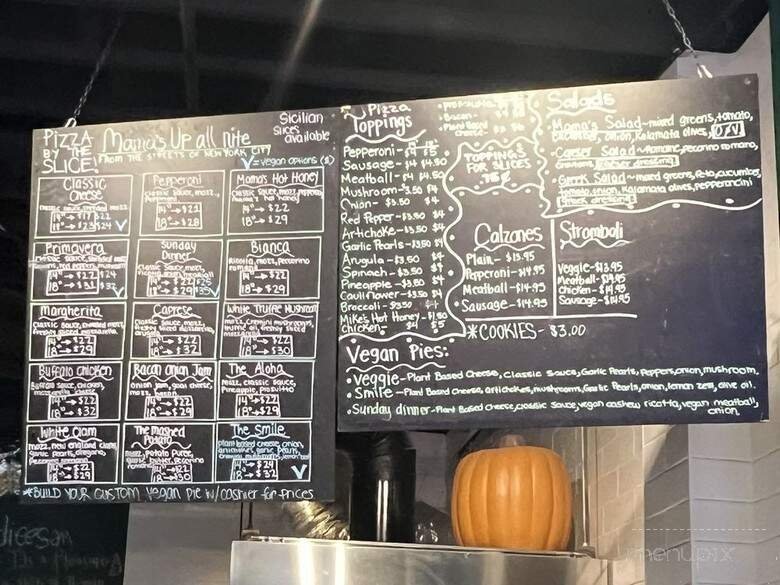 PIZZA BY THE SLICE!
Mama's Up all nite
FROM THE STREETS OF NEW YORK CITY
Sicilian slices available
V=vegan options ($)
Classic Cheese
14" → $17 $22
18" → $23 $24 V
Pepperoni
classic sauce, mozz,
14" → $22
18" → $28
Mama's Hot Honey
classic sauce, mozz, pepperoni
14" → $22
18" → $29
Primavera
14" → $22 $24
18" → $31
Sunday Dinner
classic sauce, mozz,
14" → $22 $25
18" → $29
Bianca
Ricotta, mozz, pecorino romano
14" → $22
18" → $29
Margherita
freshly sliced mozzarella
14" → $22
18" → $29
Caprese
14" → $22
18" → $32
White Truffle Mushroom
mozz, cremini mushrooms,
truffle oil, freshly sliced
14" → $22
18" → $30
Buffalo chicken
Buffalo sauce, chicken,
14" → $22
18" → $32
Bacon Onion Jam
Onion jam, goat cheese,
mozz, bacon
14" → $22
18" → $29
The Aloha
mozz, classic sauce,
Pineapple, prosciutto
14" → $22
18" → $29
White Clam
mozz, new england clams,
garlic pearls, oregano,
14" → $22
18" → $29
The Mashed Potato
mozz, Potato Puree,
butter, Pecorino
14" → $22
18" → $30
The Smile
plant based cheese, onion,
artichokes, garlic pearls,
14" → $24
18" → $32 V
*BUILD YOUR CUSTOM vegan PIE w/ cashier for prices
Pizza Toppings
• Bacon-
• Plant Based
cheese-
Pepperoni-
Sausage- $4 $4.50
Meatball- $4 $4.50
Mushroom- $3.50 $4
Onion- $3.50 $4
Red Pepper- $3.50 $4
Artichoke- $3.50 $4
Garlic Pearls- $3.50 $4
Arugula- $3.50 $4
Spinach- $3.50 $4
Pineapple- $3.50 $4
Cauliflower- $3.50 $4
Broccoli- $3.50 $4
Mike's Hot Honey- $1.50
Chicken- $4 $5
TOPPINGS FOR SLICES
Salads
• Mama's Salad~mixed greens, tomato,
cucumber, onion, Kalamata olives,
• Caesar Salad~romaine, pecorino romano,
caesar dressing
• Greek Salad~mixed greens, feta, cucumber,
tomato, onion, Kalamata olives, pepperoncini
Greek dressing
Calzones
Plain- $13.95
Pepperoni- $14.95
Meatball- $14.95
Sausage- $14.95
Stromboli
Veggie- $13.95
Meatball- $14.95
Chicken- $14.95
Sausage- $14.95
*COOKIES- $3.00
Vegan Pies:
• Veggie-Plant Based Cheese, Classic Sauce, Garlic Pearls, Peppers, onion, mushroom.
• Smile-Plant Based Cheese, artichokes, mushrooms, Garlic Pearls, onion, lemon zest, olive oil.
• Sunday dinner-Plant Based cheese, classic Sauce, vegan cashew ricotta, vegan meatball,
onion.
menupix